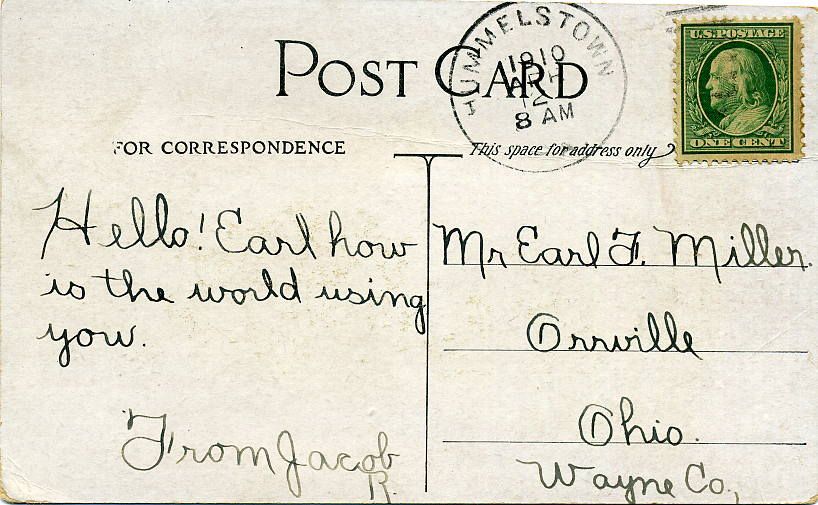 POST CARD
HUMMELSTOWN
1910
12
8 AM
U.S. POSTAGE
ONE CENT
FOR CORRESPONDENCE
This space for address only
Hello! Earl how
is the world using
you.
From Jacob
R.
Mr Earl F. Miller.
Orrville
Ohio.
Wayne Co.,